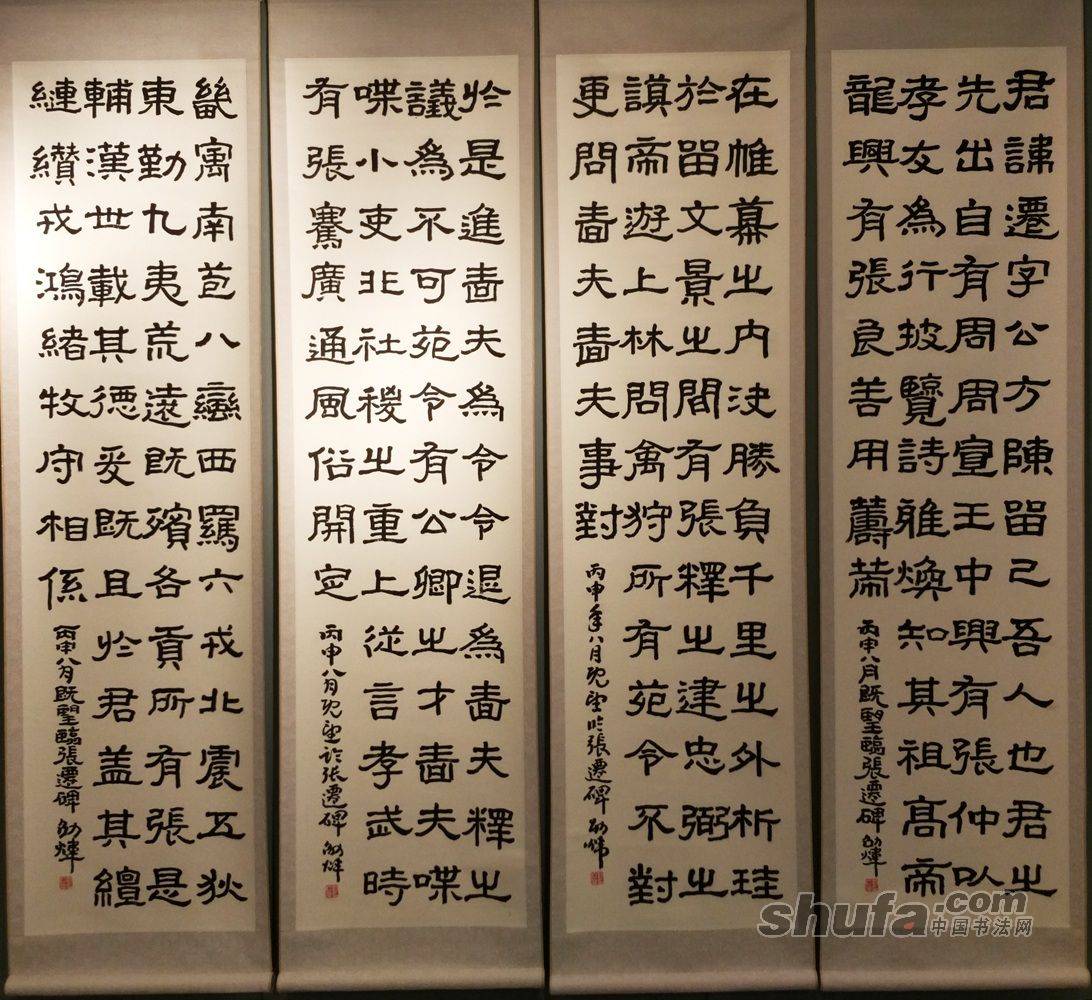 君諱遷字公方陳留己吾人也君之
先出自有周周宣王中興有張仲以
孝友為行披覽詩雅煥知其祖高帝
龍興有張良善用籌策
丙申八月既望臨張遷碑
在帷幕之内決勝負千里之外析珪
於留文景之間有張釋之建忠弼之
謨帝遊上林問禽狩所有苑令不對
更問嗇夫嗇夫事對
丙申年八月既望臨張遷碑
於是進嗇夫為令令退為嗇夫釋之
議為不可苑令有公卿之才嗇夫喋
喋小吏非社稷之重上從言孝武時
有張騫廣通風俗開定
丙申八月既望臨張遷碑
畿寓南苞八蠻西羈六戎北震五狄
東勤九夷荒遠既殯各貢所有張是
輔漢世載其德爰既且於君蓋其繵
縺纘戎鴻緒牧守相係
丙申八月既望臨張遷碑
shufa.com
中国书法网